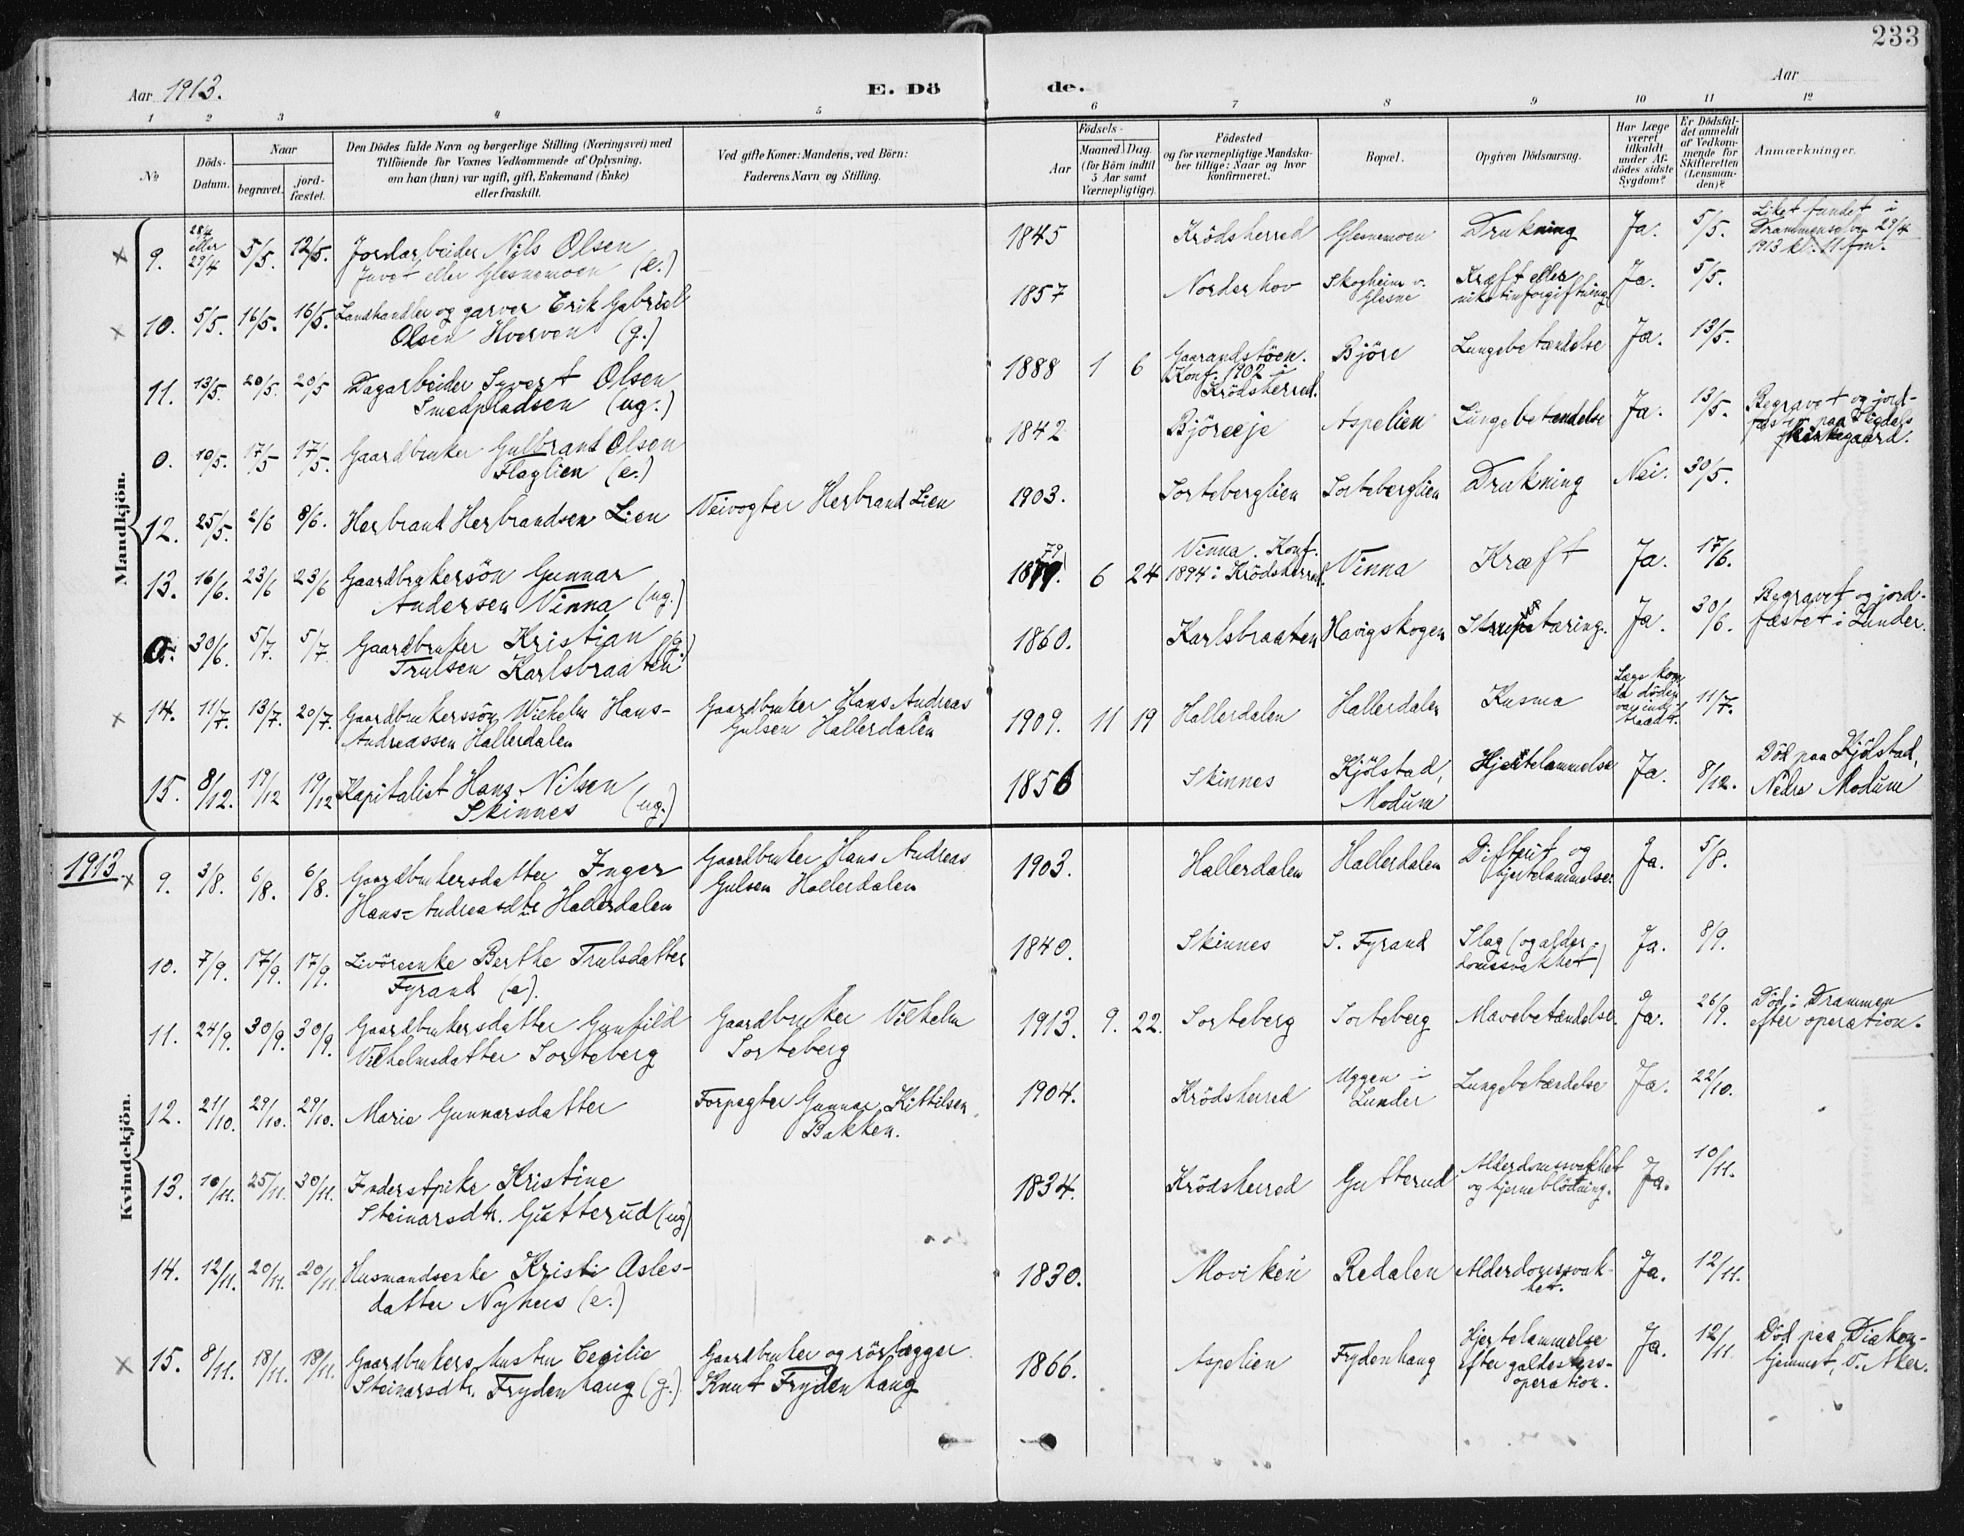 233
Aar 1913.
E. Dö de.
Aar
1 2 3 4 5 6 7 8 9 10 11 12
No
Döds-
Datum.
Naar
begravet.
jord-
fæstet.
Den Dödes fulde Navn og borgerlige Stilling (Næringsvei) med
Tilföiende for Voxnes Vedkommende af Oplysning,
om han (hun) var ugift, gift, Enkemand (Enke)
eller fraskilt.
Ved gifte Koner: Mandens, ved Börn:
Faderens Navn og Stilling.
Födsels-
Aar
Maaned Dag
(for Börn indtil
5 Aar samt
Værnepligtige).
Födested
og for værnepligtige Mandska-
ber tillige: Naar og hvor
konfirmeret.
Bopæl.
Opgiven Dödsaarsag.
Har Læge
været
tilkaldt
under Af-
dödes sidste
Sygdom?
Er Dödsfal-
det anmeldt
af Vedkom-
mende for
Skifteretten
(Lensman-
den)?
Anmærkninger.
Mandkjön.
9. 28/4 eller 29/4 5/5. 12/5. Jordarbeider Nils Olsen 1845 Krödsherred Glesnemoen Drukning Ja. 5/5. Liket fundet i
Juvet eller Glesnemoen (e.) Drammenselven 29/4
1913 kl. 11 fm.
10. 5/5. 16/5. 16/5. Landhandler og garver Erik Gabriel 1857 Norderhov Skogheim v. Kræft eller Ja. 5/5.
Olsen Hverven (g.) Glesne nikotinforgiftning
11. 13/5. 20/5. 20/5 Dagarbeider Syvert Olsen 1888 1 6 Gaarandstöen. Björe Lungebetændelse Ja. 13/5.
Smedpladsen (ug.) Konf. 1902 i
Krödsherred.
0. 10/5. 17/5 17/5. Gaardbruker Gulbrand Olsen 1842 Björeeje Aspelien Lungebetændelse Ja. 13/5. Begravet og jord-
Flaglien (e.) fæstet paa Sigdals
kirkegaard.
12. 25/5. 2/6 8/6. Herbrand Herbrandsen Lien Veivogter Herbrand Lien 1903. Sorteberglien Sorteberglien Drukning Nei. 30/5.
13. 16/6. 23/6 23/6 Gaardbrukersön Gunnar 1879. 6 24 Vinna. Konf. Vinna Kræft Ja. 17/6.
Andersen Vinna (ug.) 1894 i Krödsherred.
0. 30/6. 5/7. 5/7 Gaardbruker Kristian (g.) 1860. Karlsbraaten Havigskogen Strupetæring. Ja. 30/6. Begravet og jord-
Trulsen Karlsbraaten fæstet i Lunder.
14. 11/7. 13/7. 20/7. Gaardbrukerssön Wilhelm Hans- Gaardbruker Hans Andreas 1909. 11 19 Hallerdalen Hallerdalen Kusma Læge kom 11/7.
Andreassen Hallerdalen Gulsen Hallerdalen da döden
var ind-
traadt.
15. 8/12. 19/12 19/12 Kapitalist Hans Nilsen 1856 Skinnes Kjölstad, Hjertelammelse Ja. 8/12. Död paa Kjölstad,
Skinnes (ug.) Modum Nedre Modum
1913.
Kvindekjön.
9. 3/8. 6/8. 6/8. Gaardbrukersdatter Inger Gaardbruker Hans Andreas 1903. Hallerdalen Hallerdalen Difterit og Ja. 5/8.
Hans-Andreasdtr Hallerdalen Gulsen Hallerdalen hjertelammelse.
10. 7/9. 17/9. 17/9. Livöreenke Berthe Trulsdatter 1840. Skinnes S. Fyrand Slag (og alder- Ja. 8/9.
Fyrand (e). domssvakhet)
11. 24/9. 30/9. 30/9. Gaardbrukersdatter Gunhild Gaardbruker Vilhelm 1913. 9. 22. Sorteberg Sorteberg Mavebetændelse. Ja. 26/9. Död i Drammen
Vilhelmsdatter Sorteberg Sorteberg efter operation.
12. 21/10. 29/10. 29/10. Marie Gunnarsdatter Forpagter Gunnar Kittilsen 1904. Krödsherred Uggen i Lungebetændelse Ja. 22/10.
Bakken. Lunder
13. 10/11. 25/11. 30/11. Inderstpike Kristine 1834. Krödsherred Gutterud Alderdomssvakhet Ja. 10/11.
Steinarsdtr. Gutterud (ug) og hjerneblödning.
14. 12/11. 20/11. 20/11 Husmandsenke Kristi Asles- 1830. Moviken Redalen Alderdomssvak- Ja. 12/11.
datter Nyhus (e.) het.
15. 8/11. 18/11. 18/11. Gaardbrukers hustru Cecilie Gaardbruker og rörlægger 1866. Aspelien Frydenhaug Hjertelammelse Ja. 12/11. Död paa Diakon-
Steinarsdtr. Frydenhaug (g.) Knut Frydenhaug efter galdestens- hjemmet, V. Aker.
operation.